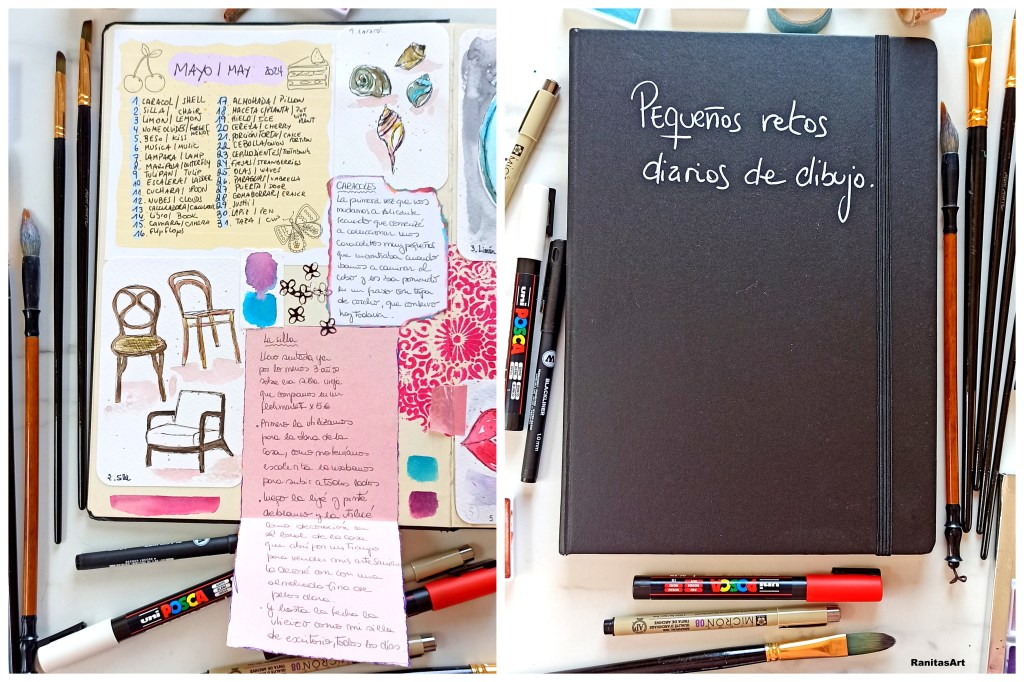 MAYO / MAY 2024
1 CARACOL / SHELL
2 SILLA / CHAIR
3 LIMON / LEMON
4 NOMEOLVIDES / FORGET
5 BESO / KISS
6 MUSICA / MUSIC
7 LAMPARA / LAMP
8 MARIPOSA / BUTTERFLY
9 TULIPAN / TULIP
10 ESCALERA / LADDER
11 CUCHARA / SPOON
12 NUBES / CLOUDS
13 CALCULADORA /
14 Libro / Book
15 CAMARA / CAMERA
16. FlipFlops
17 ALMOHADA / PILLOW
18 MACETA C/PLANTA / POT
WITH
PLANT
19 HIELO / ICE
20 CEREZA / CHERRY
21 PORCION TORTA / CAKE
PORTION
22 CEBOLLA / ONION
23 CEPILLO DIENTES / Toothbrush
24 FRESAS / STRAWBERRIES
25 OLAS / WAVES
26 PARAGUAS / UMBRELLA
27 PUERTA / DOOR
28 GOMA BORRAR /
29 SUSHI
30. LAPIZ / PEN
31. TAZA / CUP
1. Caracol
CARACOLES
La primera vez que nos
mudamos a Alicante
recuerdo que comencé
a coleccionar unos
caracolitos muy pequeños
que encontraba cuando
íbamos a caminar al
cabo y los iba poniendo
en un frasco con tapa
de corcho, que conservo
hoy todavía.
3. Limón
La silla
Llevo sentada ya
por lo menos 3 años
sobre una silla vieja
que compramos en un
fleamarket x 5€
. Primero la utilizamos
para la obra de la
casa, como no teníamos
escalera la usábamos
para subir a todos lados
. Luego la lijé y pinté
de blanco y la utilicé
como decoración en
el local de la casa
que abrí por un tiempo
para vender mis artesanías
la decoré con una
almohada fina de
pelos clara.
. Y hasta la fecha la
utilizo como mi silla
de escritorio, todos los días
2. Silla
5
uni POSCA
MICRON 08
Pequeños retos
diarios de dibujo.
MICRON
uni POSCA
BLACKLINER
1.0 mm
uni POSCA
MICRON 08
RanitasArt